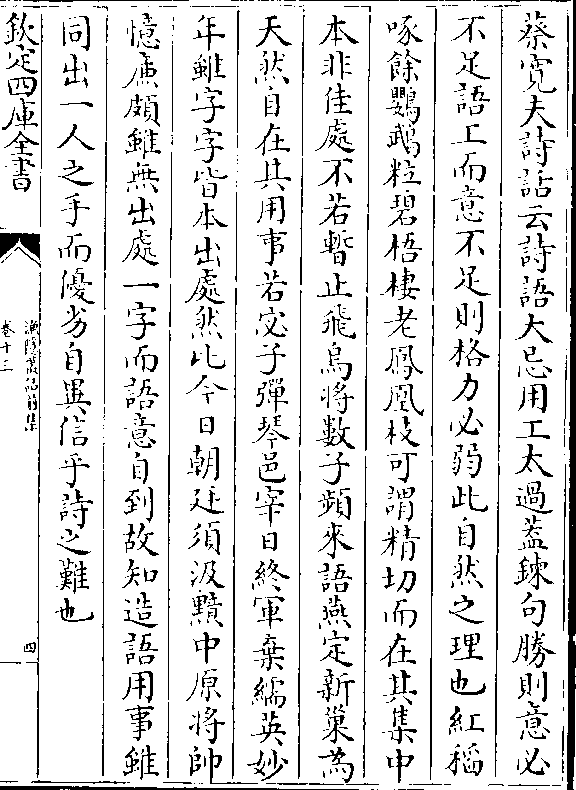 蔡寛夫詩話云詩語大忌用工太過葢鍊句勝則意必
不足語工而意不足則格力必弱此自然之理也紅稻
啄餘鸚鵡粒碧梧棲老鳳凰枝可謂精切而在其集中
本非佳處不若暫止飛烏將數子頻來語燕定新巢為
天然自在其用事若宓子彈琴邑宰日終軍棄繻英妙
年雖字字皆本出處然比今日朝廷須汲黯中原將帥
憶廉頗雖無出處一字而語意自到故知造語用事雖
同出一人之手而優劣自異信乎詩之難也
欽定四庫全書
漁隱叢話前集
卷十三
四